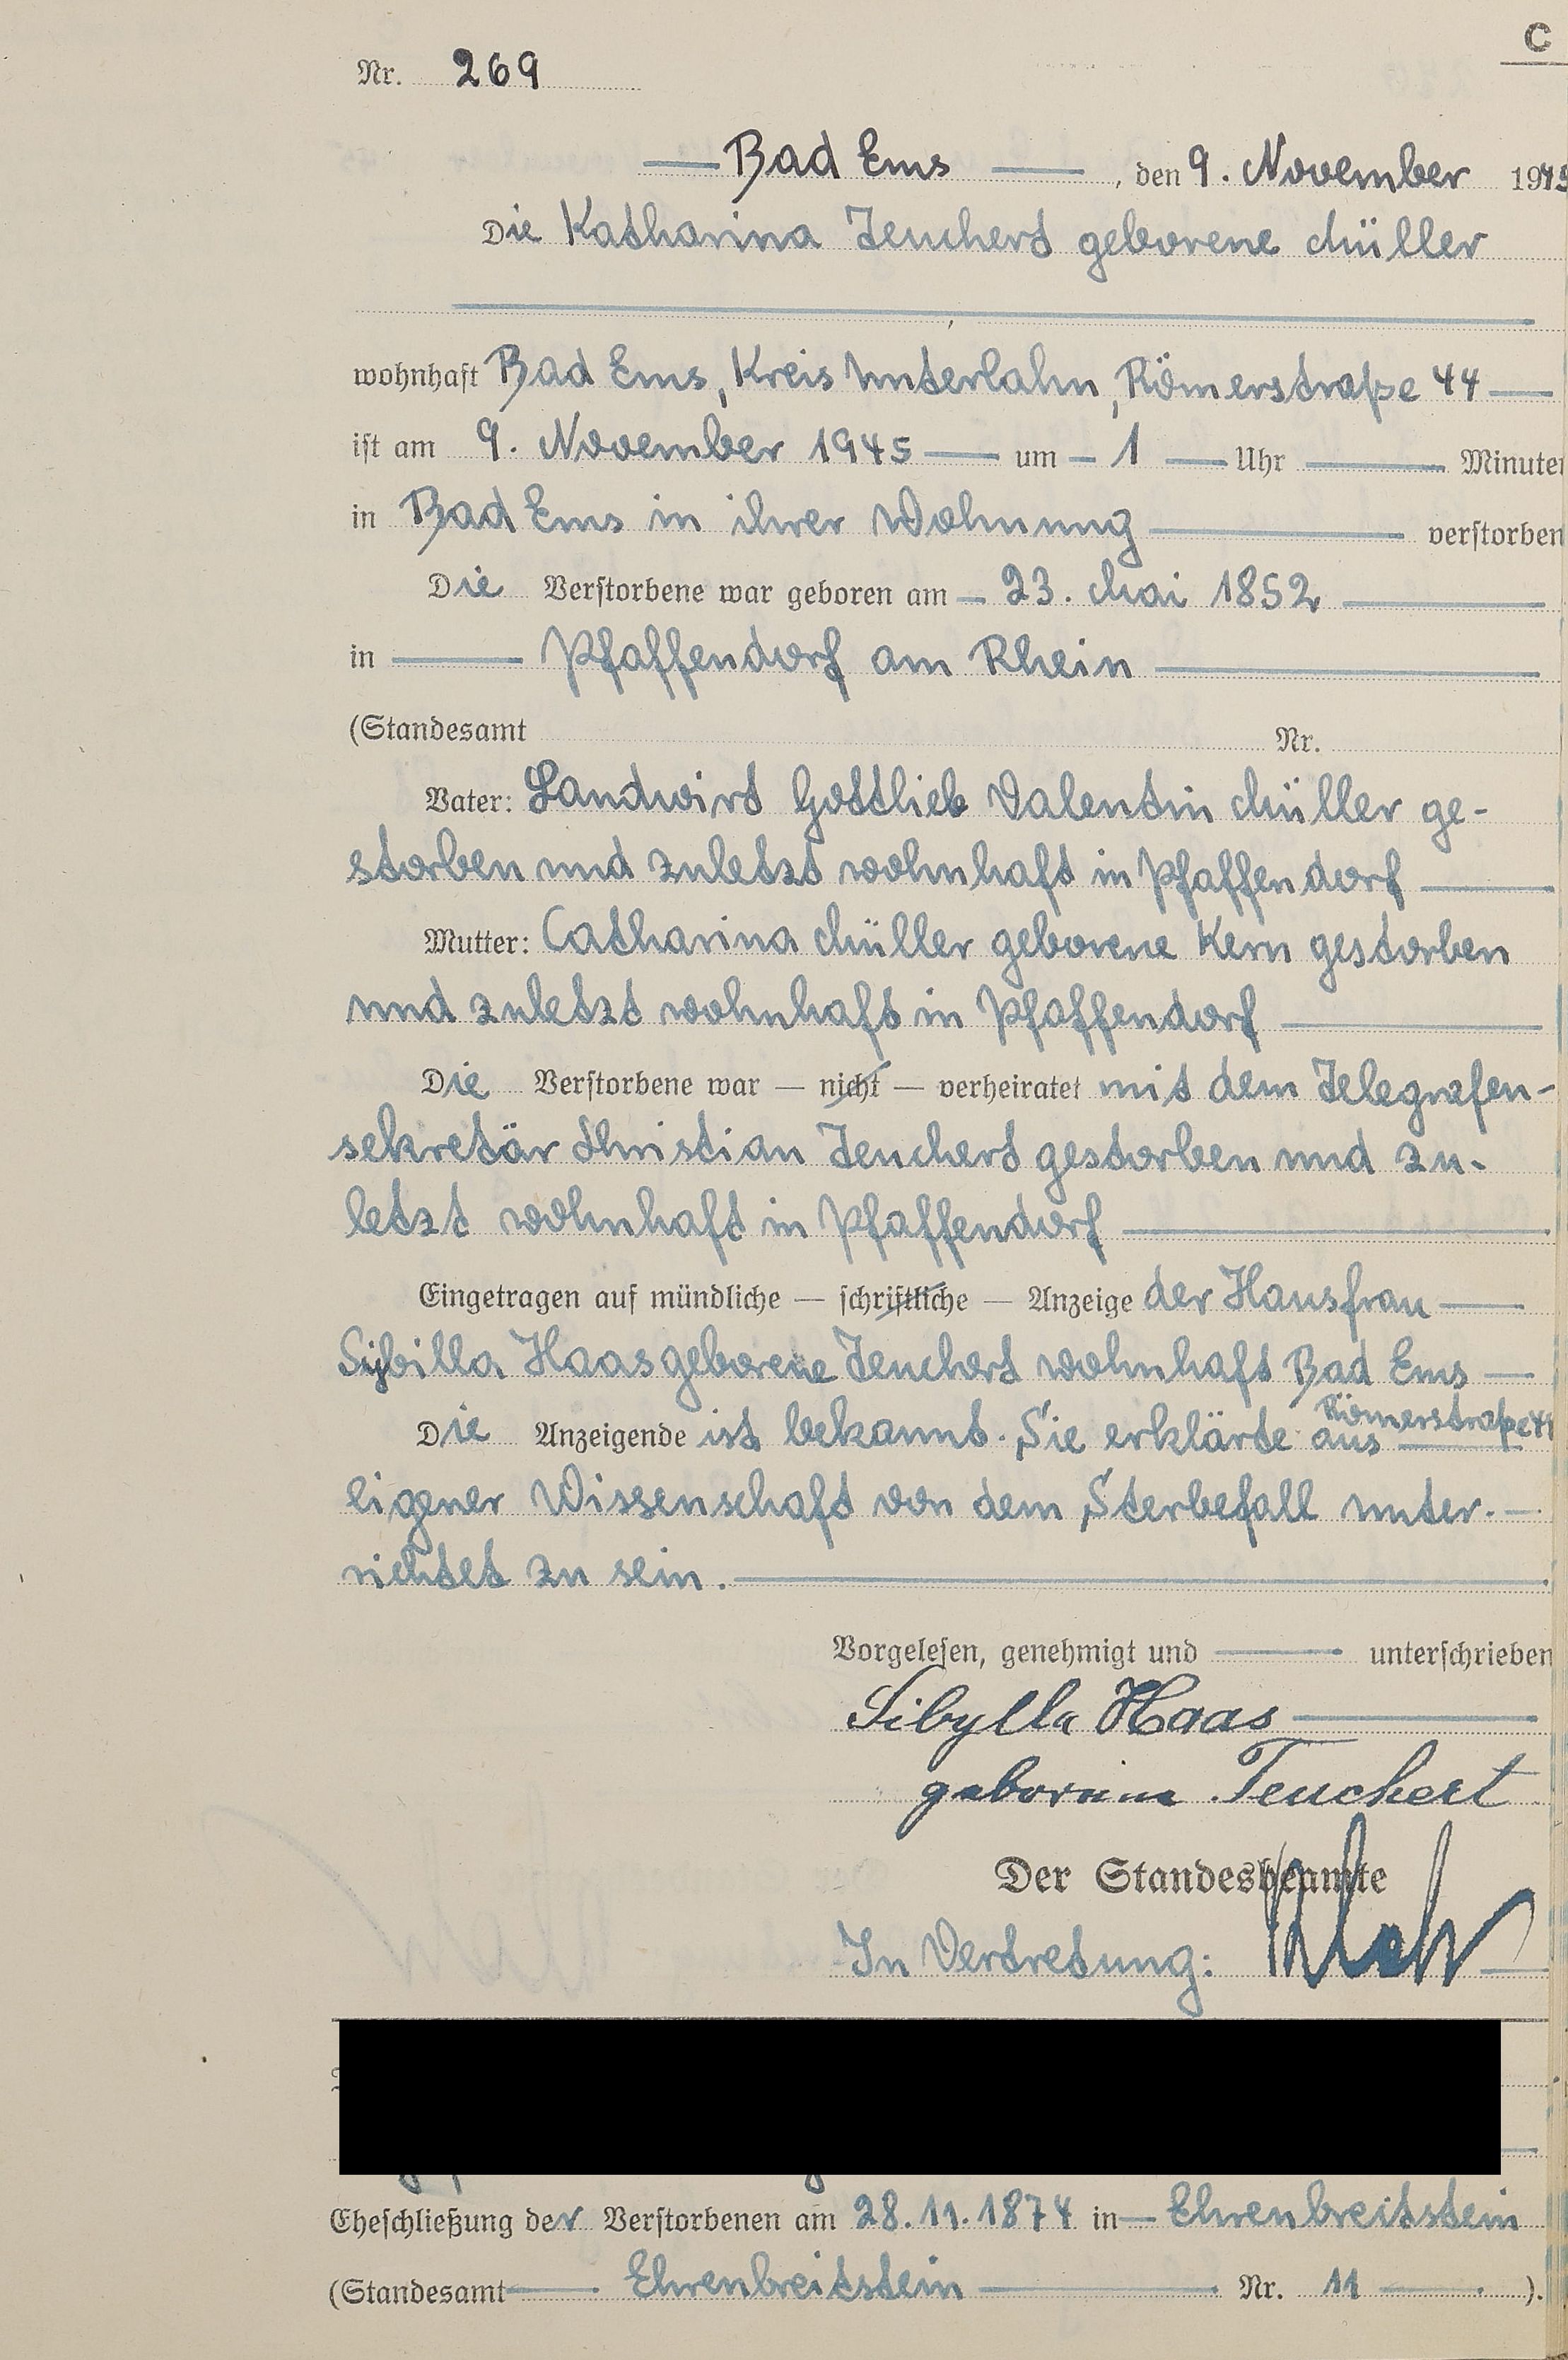 C
Nr. 269
Bad Ems, den 9. November 1945
Die Katharina Teuchert geborene Müller
wohnhaft Bad Ems, Kreis Unterlahn, Römerstraße 44
ist am 9. November 1945 um 1 Uhr Minuten
in Bad Ems in ihrer Wohnung verstorben
Die Verstorbene war geboren am 23. Mai 1852
in Pfaffendorf am Rhein
(Standesamt Nr.
Vater: Landwirt Gottlieb Valentin Müller ge-
storben und zuletzt wohnhaft in Pfaffendorf
Mutter: Catharina Müller geborene Kern gestorben
und zuletzt wohnhaft in Pfaffendorf
Die Verstorbene war — nicht — verheiratet mit dem Telegrafen-
sekretär Christian Teuchert gestorben und zu-
letzt wohnhaft in Pfaffendorf
Eingetragen auf mündliche — schriftliche — Anzeige der Hausfrau
Sybilla Haas geborene Teuchert wohnhaft Bad Ems
Römerstraße 44
Die Anzeigende ist bekannt. Sie erklärte aus
eigener Wissenschaft von dem Sterbefall unter-
richtet zu sein.
Vorgelesen, genehmigt und unterschrieben
Sibylla Haas
geborene Teuchert
Der Standesbeamte
In Vertretung:
Eheschließung der Verstorbenen am 28.11.1874 in Ehrenbreitstein
(Standesamt Ehrenbreitstein Nr. 11 ).